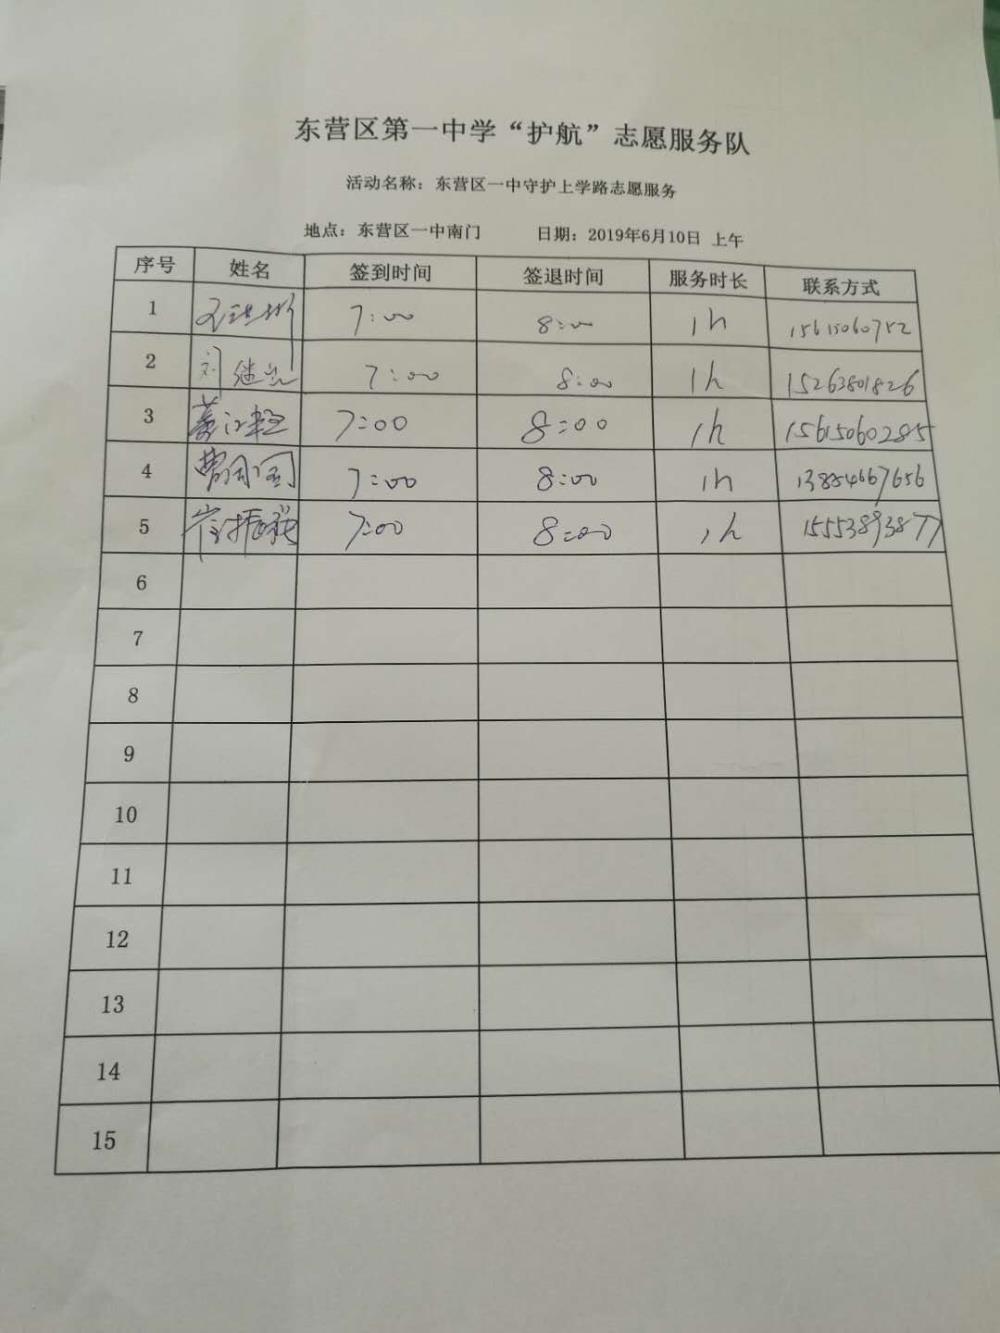 东营区第一中学“护航”志愿服务队
活动名称：东营区一中守护上学路志愿服务
地点：东营区一中南门 日期：2019年6月10日 上午
序号 姓名 签到时间 签退时间 服务时长 联系方式
1 7:00 8:00 1h 15615060752
2 刘 7:00 8:00 1h 15263801826
3 7:00 8:00 1h 15615060285
4 7:00 8:00 1h 13854667656
5 崔振 7:00 8:00 1h 15553893877
6
7
8
9
10
11
12
13
14
15